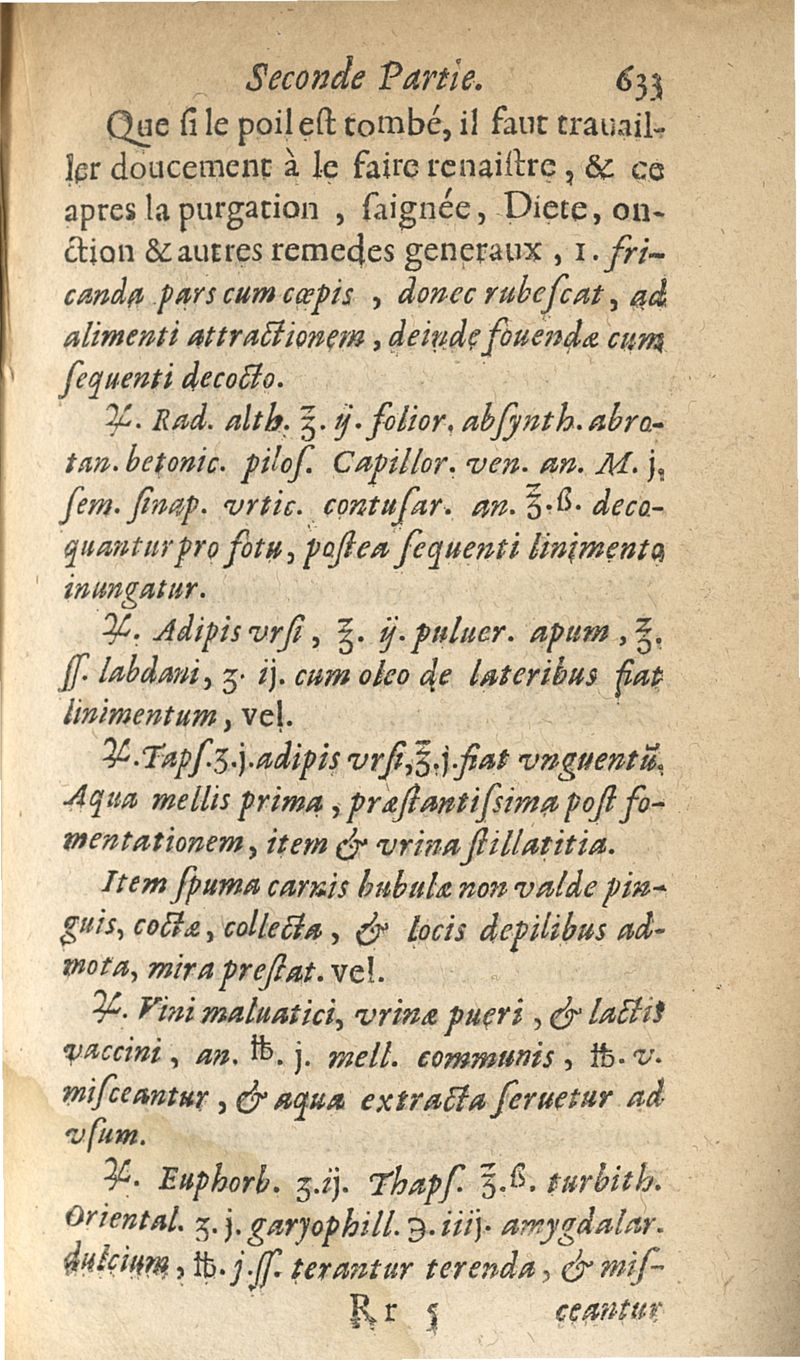 Seconde Partie. 633
Que ſi le poil eſt tombé, il faut trauail-
ler doucement à le faire renaiſtre, & ce
apres la purgation, ſaignée, Diete, on-
ction & autres remedes generaux, 1. fri-
canda pars cum cœpis, donec rubeſcat, ad
alimenti attractionem, deinde fouendæ cum
ſequenti decocto.
℞. Rad. alth. ℥. ij. folior. abſynth. abro-
tan. betonic. piloſ. Capillor. ven. an. M. j.
ſem. ſinap. vrtic. contuſar. an. ℥. ß. deco-
quantur pro fotu, poſtea ſequenti linimento
inungatur.
℞. Adipis vrſi, ℥. ij. puluer. apum, ℥.
ſſ. labdani, ʒ. ij. cum oleo de lateribus fiat
linimentum, vel.
℞. Tapſ. ʒ. j. adipis vrſi, ℥. j. fiat vnguentũ.
Aqua mellis prima, præſtantiſsima poſt fo-
mentationem, item & vrina ſtillatitia.
Item ſpuma carnis bubulæ non valde pin-
guis, coctæ, collecta, & locis depilibus ad-
mota, mira preſtat. vel.
℞. Vini maluatici, vrinæ pueri, & lactis
vaccini, an. ℔. j. mell. communis, ℔. v.
miſceantur, & aqua extracta ſeruetur ad
vſum.
℞. Euphorb. ʒ. ij. Thapſ. ℥. ß. turbith.
Oriental. ʒ. j. garyophill. ℈. iiij. amygdalar.
dulcium, ℔. j. ſſ. terantur terenda, & miſ-
Rr 5 ceantur